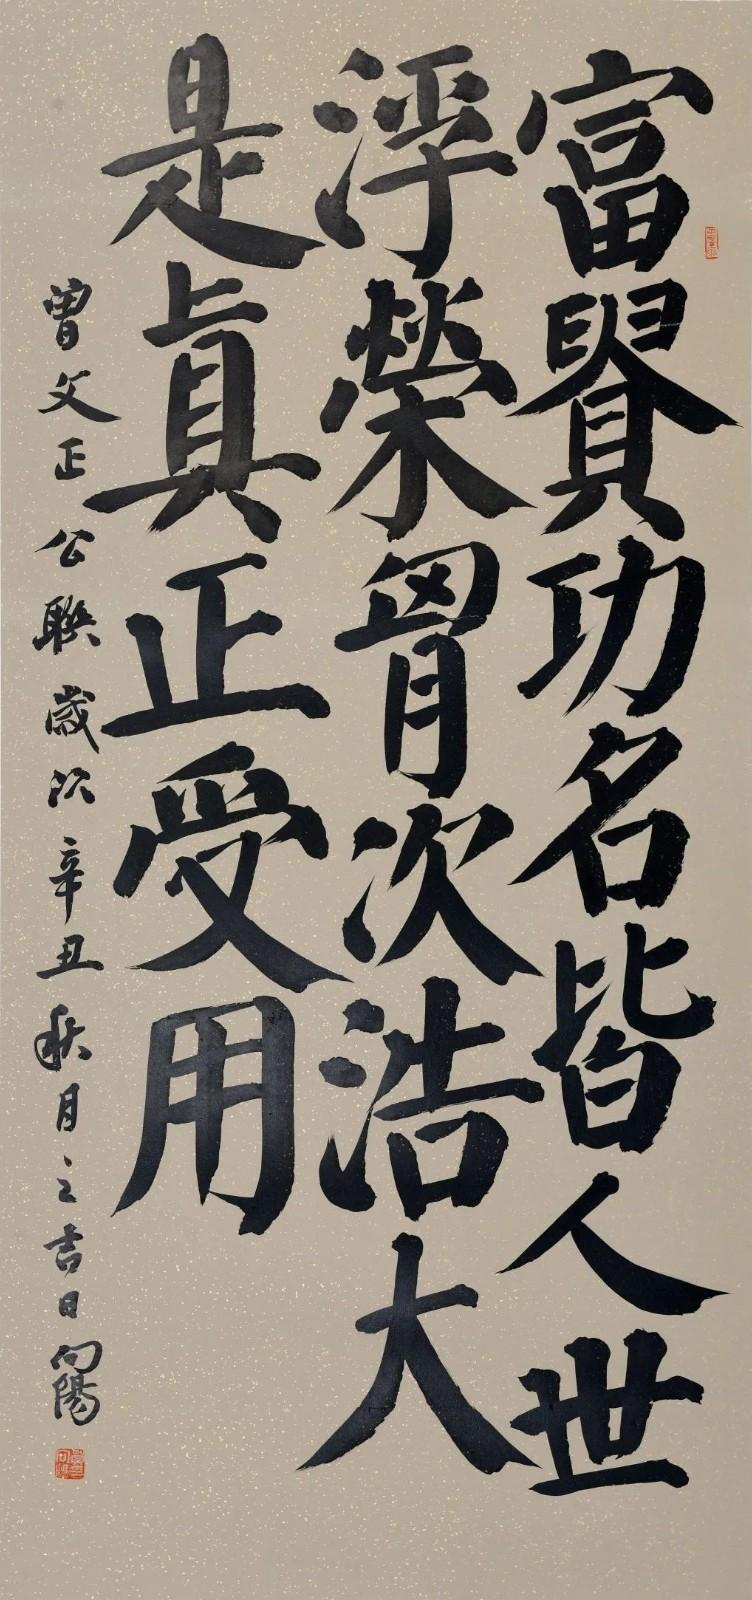 富貴功名皆人世
浮榮胷次浩大
是真正受用
曾文正公聯歲次辛丑秋月之吉日向陽